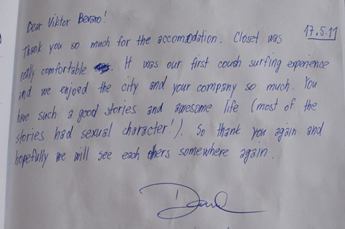 Dear Viktor Bevzno!
17.5.11
Thank you so much for the accomondation. Closet was
really comfortable. It was our first couch surfing experience
and we enjoed the city and your company so much. You
have such a good stories and awesome life (most of the
stories had sexual character!). So thank you again and
hopefully we will see each others somewhere again.